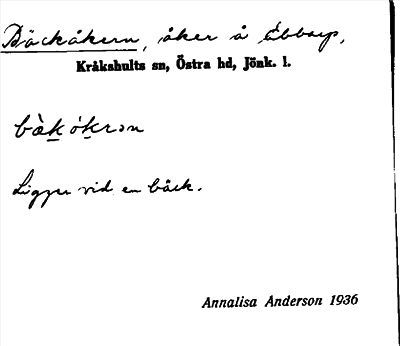 Bäckåkern, åker å Ebbarp,
Kråkshults sn, Östra hd, Jönk. l.
bàkókrən
Ligger vid en bäck.
Annalisa Anderson 1936